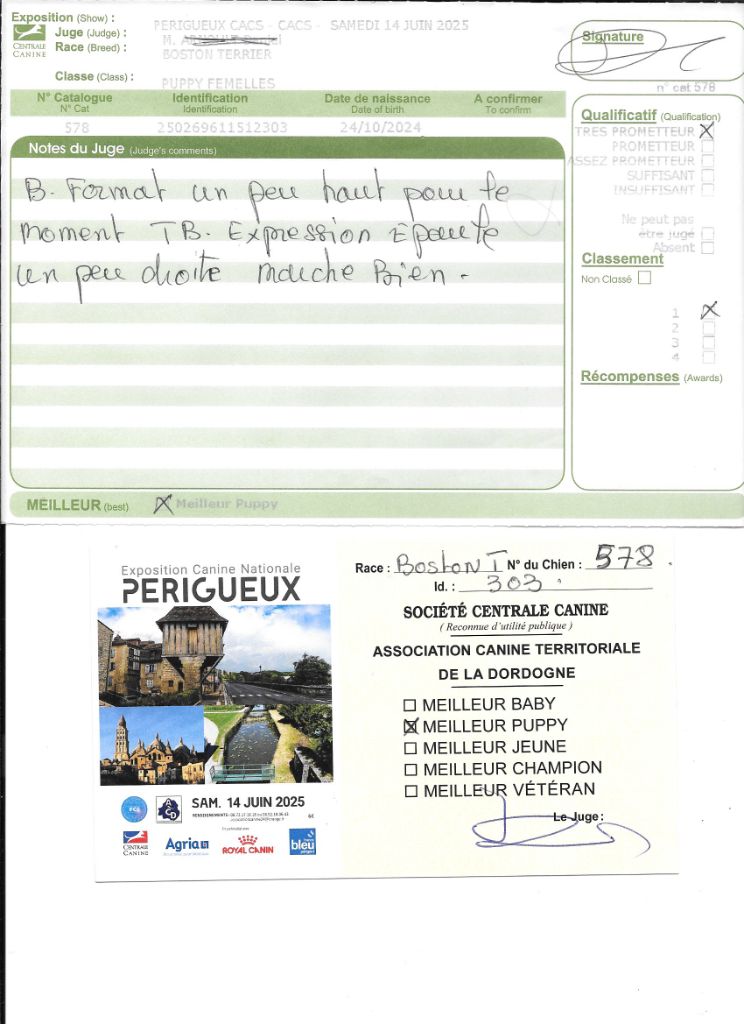 Exposition (Show) :
PERIGUEUX CACS - CACS - SAMEDI 14 JUIN 2025
Juge (Judge) :
M.
Race (Breed) :
BOSTON TERRIER
CENTRALE
CANINE
Classe (Class) :
PUPPY FEMELLES
Signature
n° cat 578
N° Catalogue Identification Date de naissance A confirmer
N° Cat Identification Date of birth To confirm
578 250269611512303 24/10/2024
Notes du Juge (Judge's comments)
B. Format un peu haut pour le
moment TB. Expression Epaule
un peu droite marche Bien.
Qualificatif (Qualification)
TRES PROMETTEUR
PROMETTEUR
ASSEZ PROMETTEUR
SUFFISANT
INSUFFISANT
Ne peut pas
être jugé
Absent
Classement
Non Classé
1
2
3
4
Récompenses (Awards)
MEILLEUR (best) Meilleur Puppy
Exposition Canine Nationale
PERIGUEUX
SAM. 14 JUIN 2025
CENTRALE
CANINE
Agria
ROYAL CANIN
bleu
Race : Boston T N° du Chien : 578
Id. : 303
SOCIÉTÉ CENTRALE CANINE
( Reconnue d'utilité publique )
ASSOCIATION CANINE TERRITORIALE
DE LA DORDOGNE
MEILLEUR BABY
MEILLEUR PUPPY
MEILLEUR JEUNE
MEILLEUR CHAMPION
MEILLEUR VÉTÉRAN
Le Juge :